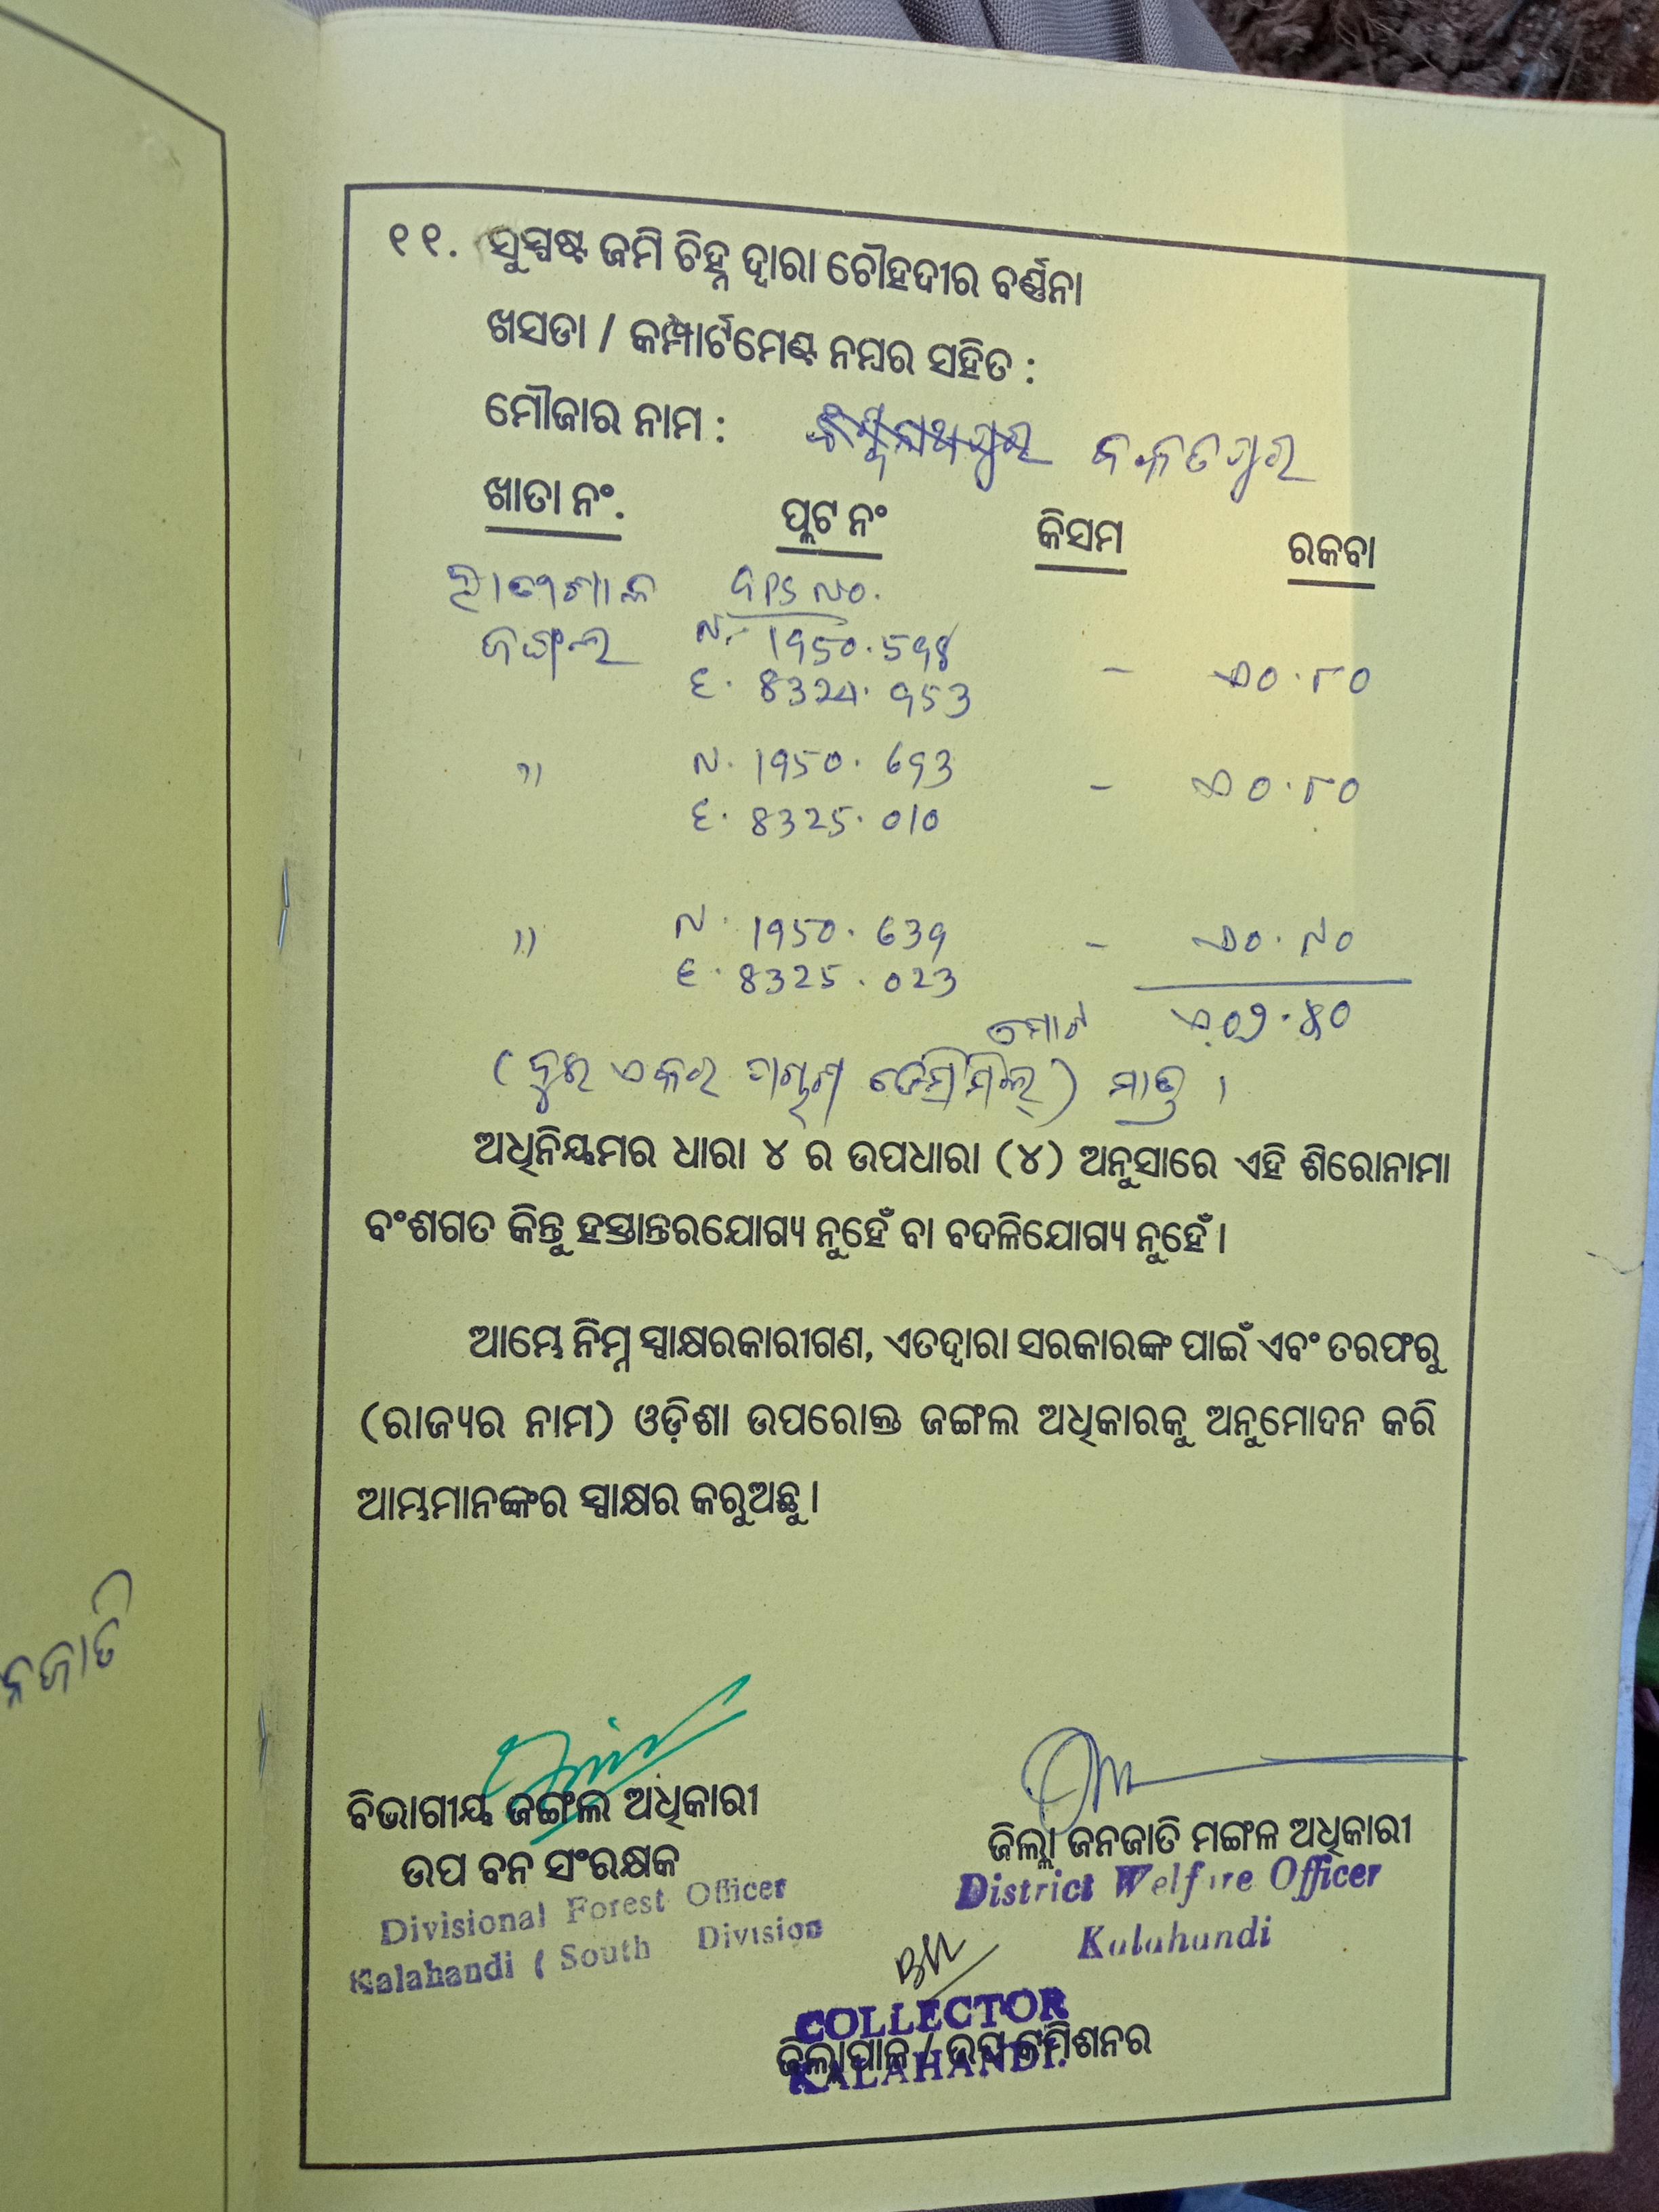 ୧୧. ସୁସ୍ପଷ୍ଟ ଜମି ଚିହ୍ନ ଦ୍ୱାରା ଚୌହଦୀର ବର୍ଣ୍ଣନା
ଖସଡା / କମ୍ପାର୍ଟମେଣ୍ଟ ନମ୍ବର ସହିତ :
ମୌଜାର ନାମ :
ଖାତା ନଂ. ପ୍ଲଟ ନଂ କିସମ ରକବା
GPS NO.
ଜଙ୍ଗଲ N. 1950.598
E. 8324.953 - ଏ0.୮0
" N. 1950.693 - ଏ0.୮0
E. 8325.010
" N. 1950.639 - ଏ0.୮0
E. 8325.023
ମୋଟ ଏ.0୨.୪0
(ଦୁଇ ଏକର ଚାଳିଶ ଡେସିମିଲ୍) ମାତ୍ର ।
ଅଧିନିୟମର ଧାରା ୪ ର ଉପଧାରା (୪) ଅନୁସାରେ ଏହି ଶିରୋନାମା
ବଂଶଗତ କିନ୍ତୁ ହସ୍ତାନ୍ତରଯୋଗ୍ୟ ନୁହେଁ ବା ବଦଳିଯୋଗ୍ୟ ନୁହେଁ ।
ଆମ୍ଭେ ନିମ୍ନ ସ୍ୱାକ୍ଷରକାରୀଗଣ, ଏତଦ୍ୱାରା ସରକାରଙ୍କ ପାଇଁ ଏବଂ ତରଫରୁ
(ରାଜ୍ୟର ନାମ) ଓଡ଼ିଶା ଉପରୋକ୍ତ ଜଙ୍ଗଲ ଅଧିକାରକୁ ଅନୁମୋଦନ କରି
ଆମ୍ଭମାନଙ୍କର ସ୍ୱାକ୍ଷର କରୁଅଛୁ ।
ନଜାତି
ବିଭାଗୀୟ ଜଙ୍ଗଲ ଅଧିକାରୀ
ଉପ ବନ ସଂରକ୍ଷକ
Divisional Forest Officer
Kalahandi ( South Division
ଜିଲ୍ଲା ଜନଜାତି ମଙ୍ଗଳ ଅଧିକାରୀ
District Welfare Officer
Kalahandi
COLLECTOR
ଜିଲ୍ଲାପାଳ / ଉପ କମିଶନର
KALAHANDI.